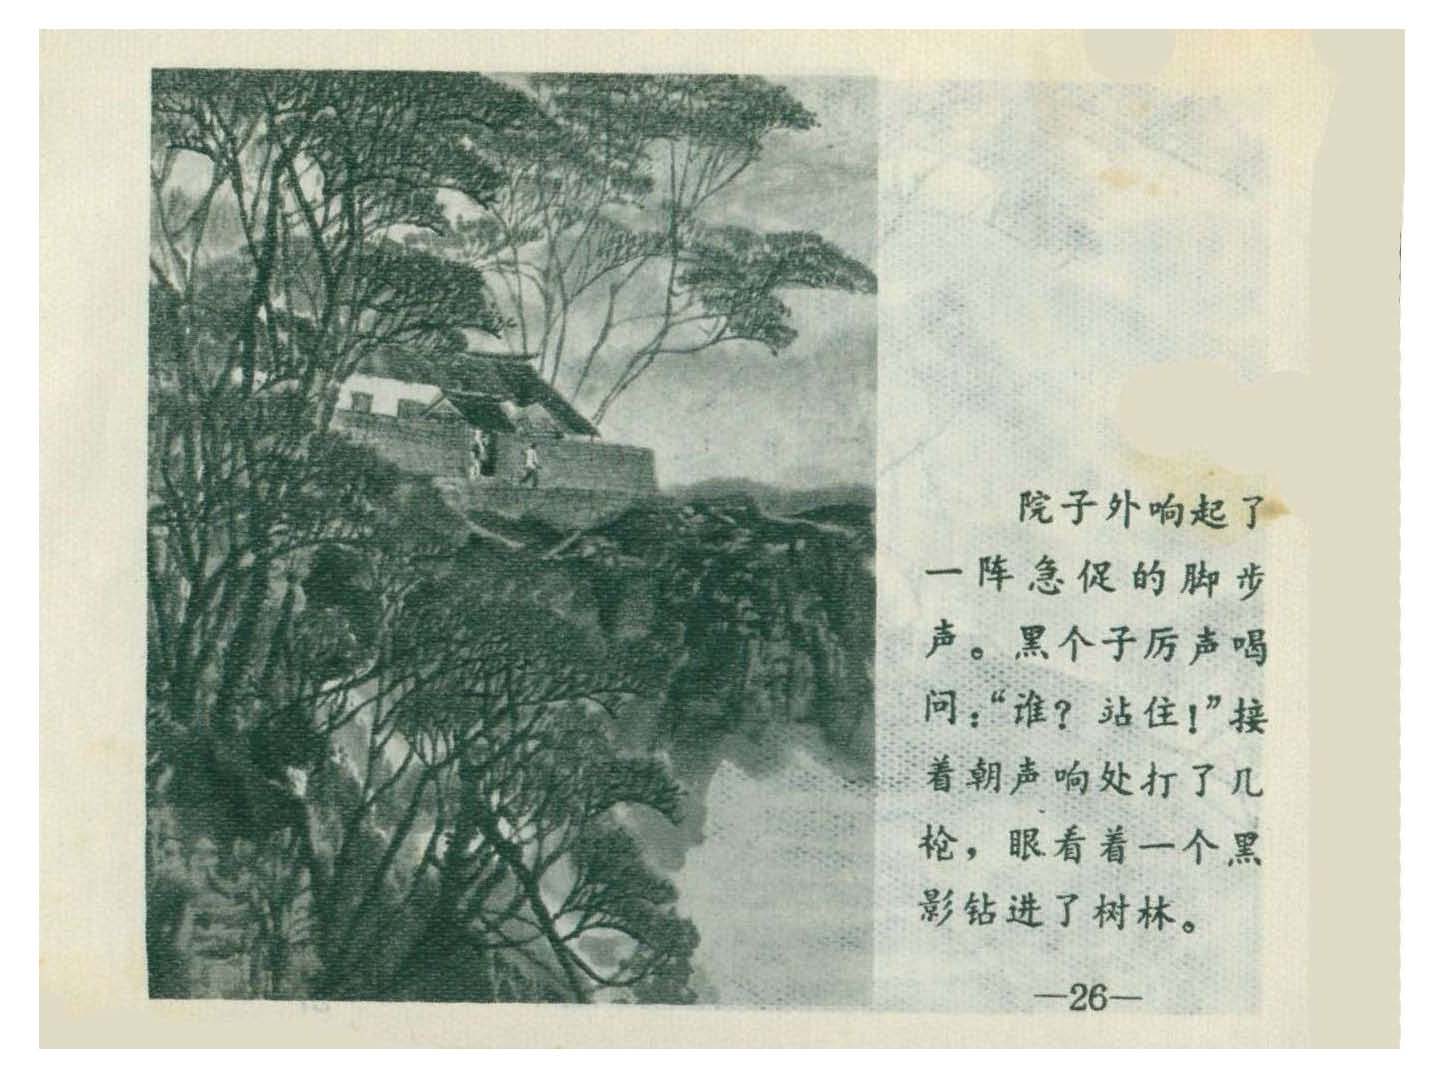 院子外响起了
一阵急促的脚步
声。黑个子厉声喝
问：“谁？站住！”接
着朝声响处打了几
枪，眼看着一个黑
影钻进了树林。
—26—